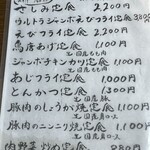 さしみ定食 2,200円
ウルトラジャンボエビフライ定食 3,80
えびフライ定食 2,200円
鳥唐あげ定食 1,100円
ジャンボチキンカツ定食 1,100円
あじフライ定食 1,000円
とんかつ定食 1,100円
豚肉のしょうが焼定食 1,100円
豚肉のニンニク焼定食 1,100円
肉野菜炒め定食 980